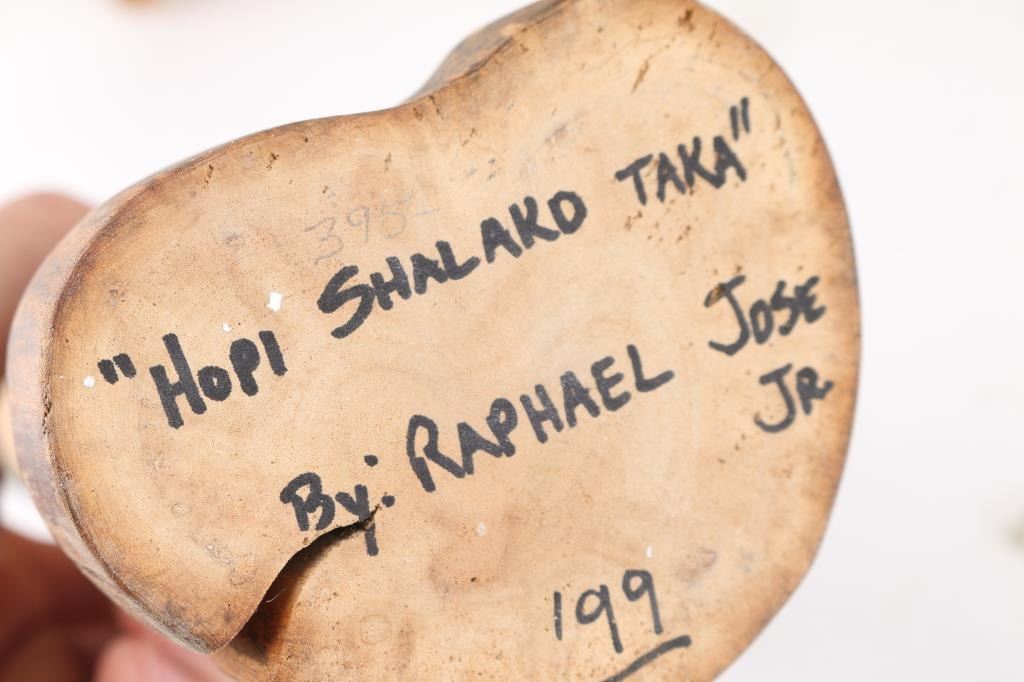 395
"HOPI SHALAKO TAKA"
By: RAPHAEL JOSE
JR
199